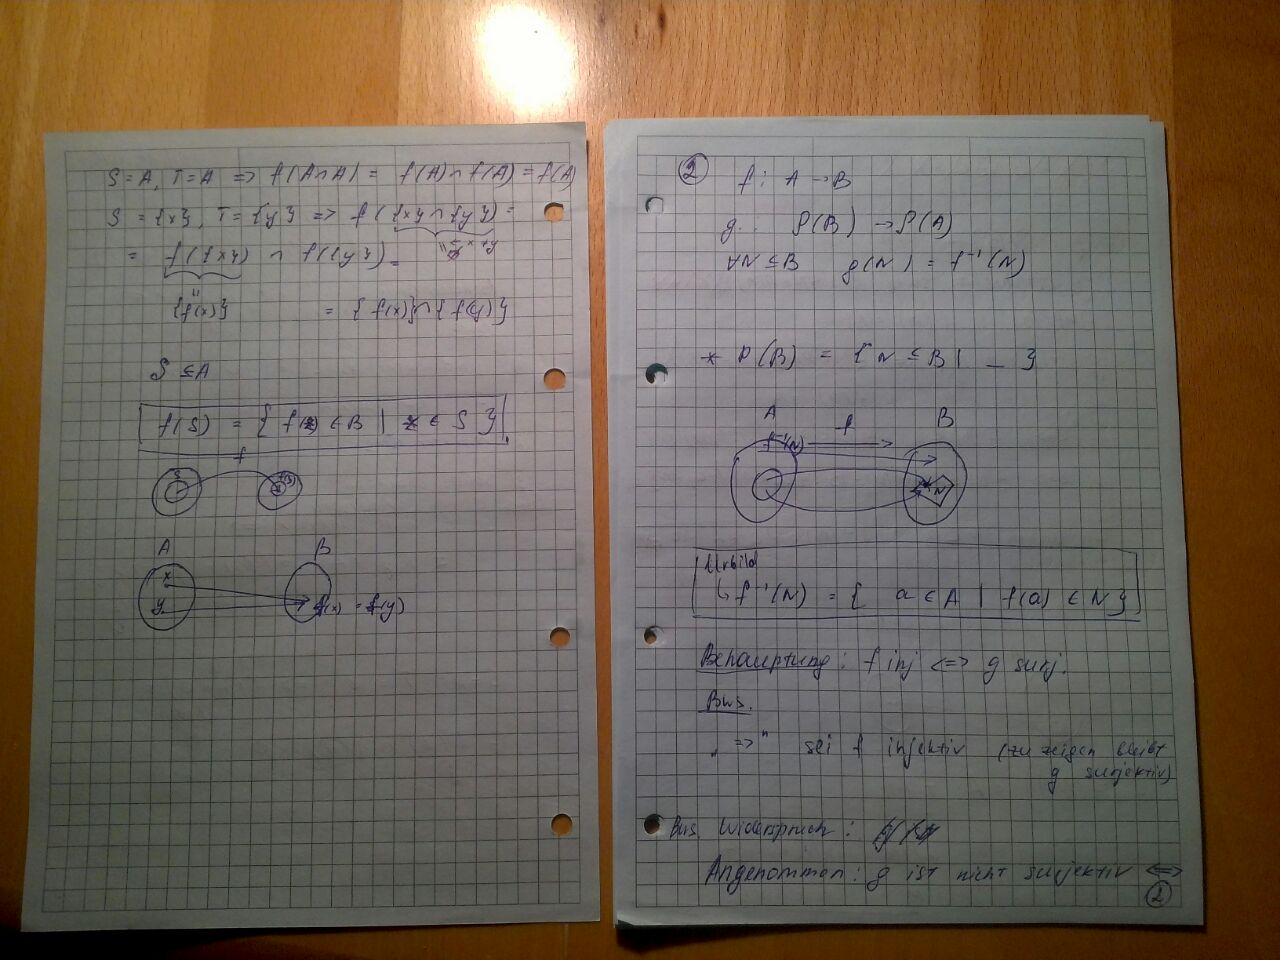 S = A, T = A => f(A∩A) = f(A) ∩ f(A) = f(A)
S = {x}, T = {y} => f({x} ∩ {y}) =
= f({x}) ∩ f({y}) =
{f(x)} = {f(x)} ∩ {f(y)}
S ⊆ A
f(S) = { f(x) ∈ B | x ∈ S }
f
S f(S)
A B
x
y f(x) = f(y)
② f : A → B
g : P(B) → P(A)
∀N ⊆ B g(N) = f⁻¹(N)
* P(B) = { N ⊆ B | _ }
A B
f⁻¹(N) f
N
Urbild
↳ f⁻¹(N) = { a ∈ A | f(a) ∈ N }
Behauptung: f inj <=> g surj.
Bws.
„=>" sei f injektiv (zu zeigen bleibt
g surjektiv)
Bws. Widerspruch:
Angenommen: g ist nicht surjektiv <=>
②